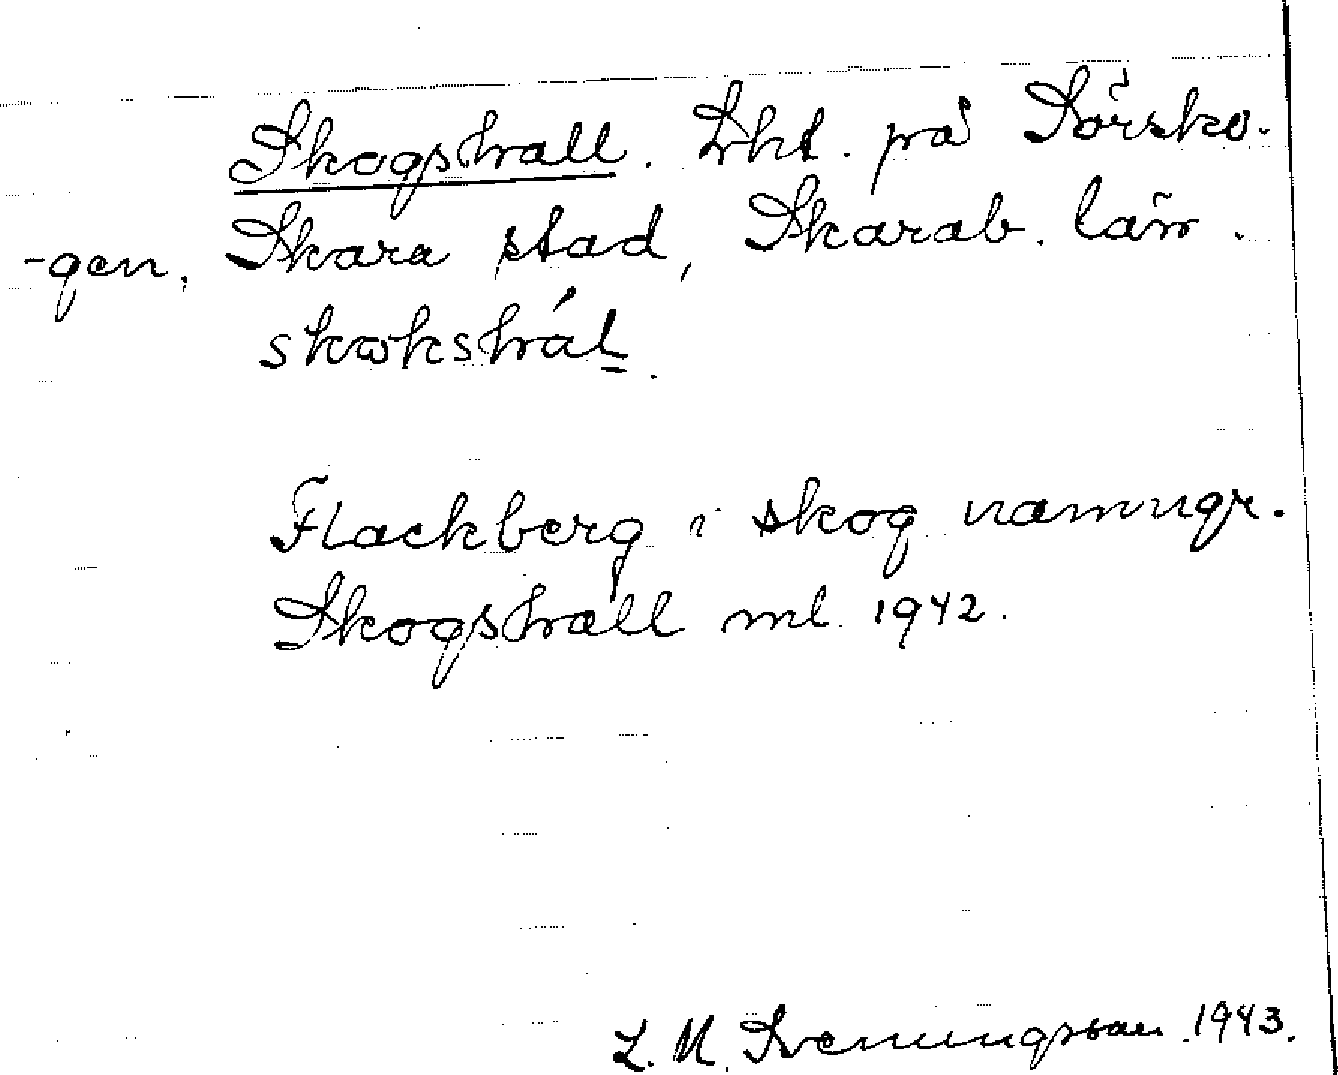 Skogshall. Lht. på Sörsko-
-gen, Skara stad, Skarab. län.
skωkshál.
Flackberg i skog namngr.
Skogshall ml. 1942.
L. M. Svenungsson 1943.